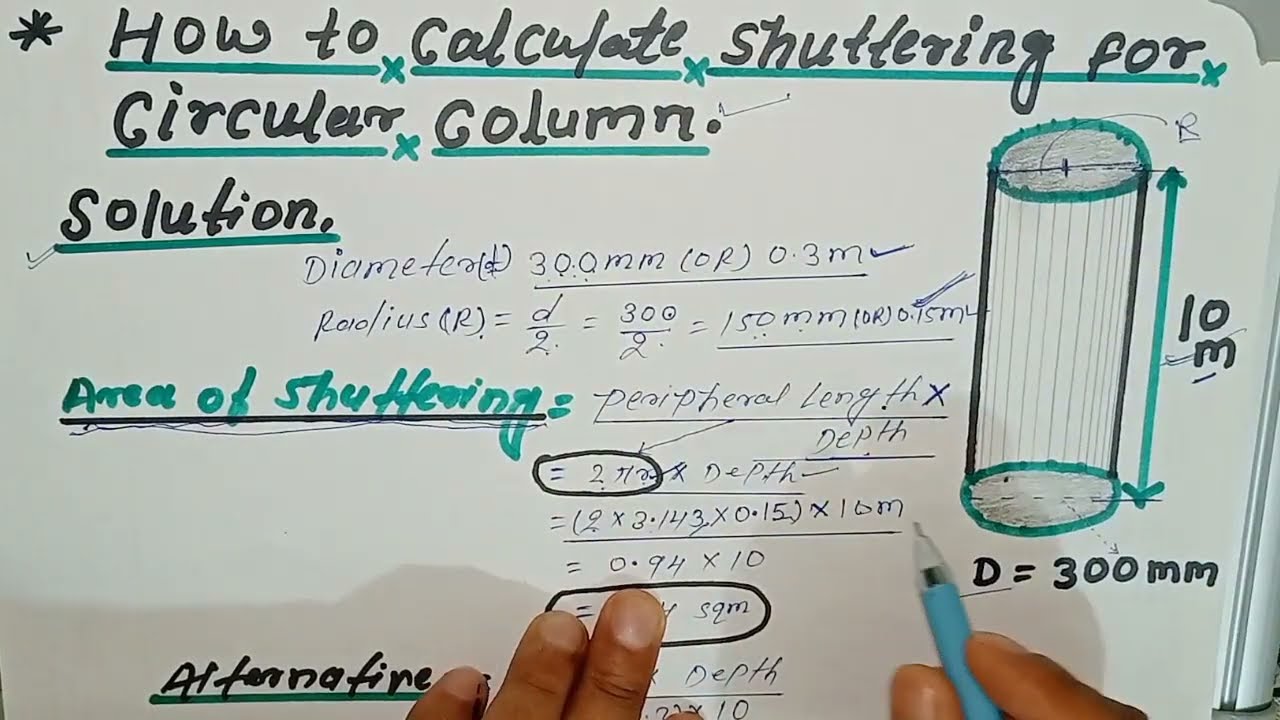 * How to Calculate Shuttering for
Circular Column.
R
Solution.
Diameter(d) 300mm (OR) 0.3m
Radius(R) = d/2 = 300/2 = 150mm(OR)0.15m
10
m
Area of Shuttering = Peripheral Length ×
Depth
= 2πr × Depth
= (2 × 3.143 × 0.15) × 10m
= 0.94 × 10
D = 300mm
= sqm
Alternative
× Depth
× 10